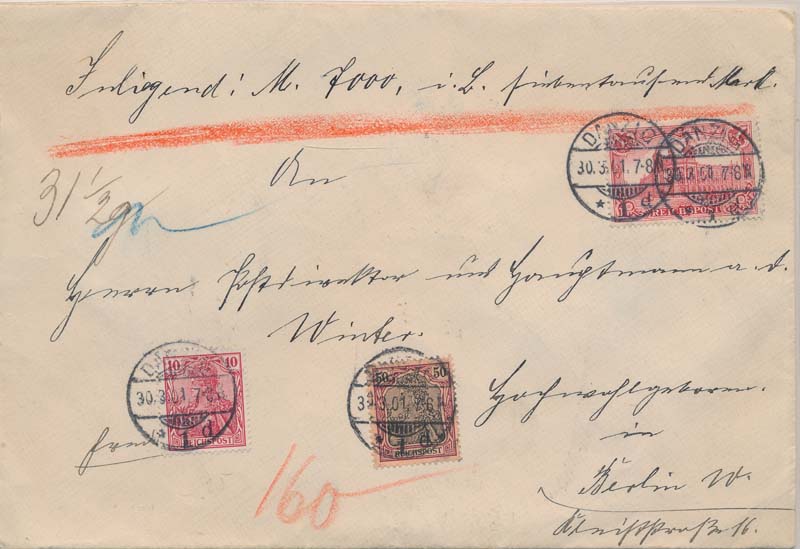 Inligend: M. 7000, i. B. siebentausend Mark.
DANZIG DANZIG
30.3.01.7-8N 30.3.01.7-8N
1 d
REICHSPOST
31 1/2 gr
An
Herrn Postdirektor und Hauptmann a. d.
Winter.
10 10
DANZIG
30.3.01.7-8N
1 d
REICHSPOST
50 50
30.3.01.7-8N
1 d
REICHSPOST
Hochwohlgeboren.
in
Berlin W.
Kleiststraße 16.
160